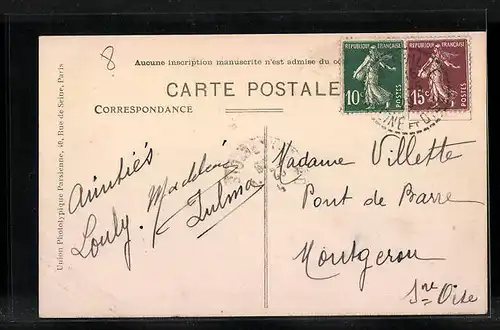 8
Aucune inscription manuscrite n'est admise du cô
CARTE POSTALE
CORRESPONDANCE
REPUBLIQUE FRANÇAISE
10c
POSTES
REPUBLIQUE FRANÇAISE
15c
POSTES
INE ET O
Union Photolypique Parisienne, 40, Rue de Seine, Paris
Amitiés
Madeleine
Louly
Zulma
Madame Villette
Pont de Barre
Montgeron
Sne Oise